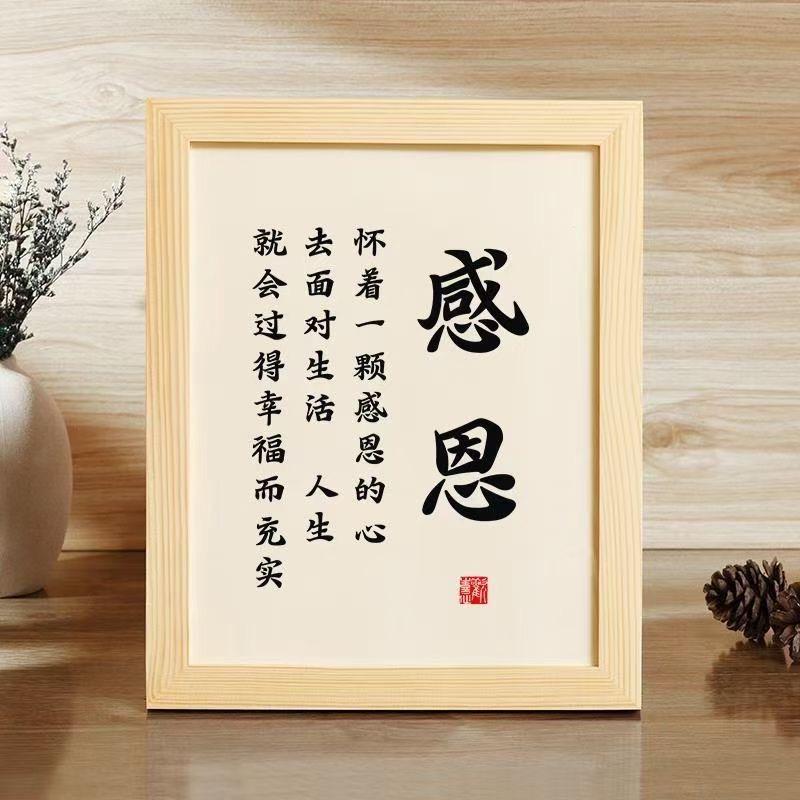 感恩
怀着一颗感恩的心
去面对生活 人生
就会过得幸福而充实